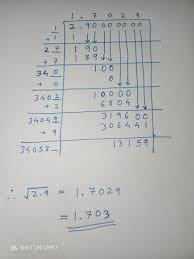 1.7029
1 2.90000000
+1 1
27 190
+7 189
340 100
+0 0
3402 10000
+2 6804
34049 319600
+9 306441
34058- 13159
∴ √2.9 = 1.7029
= 1.703